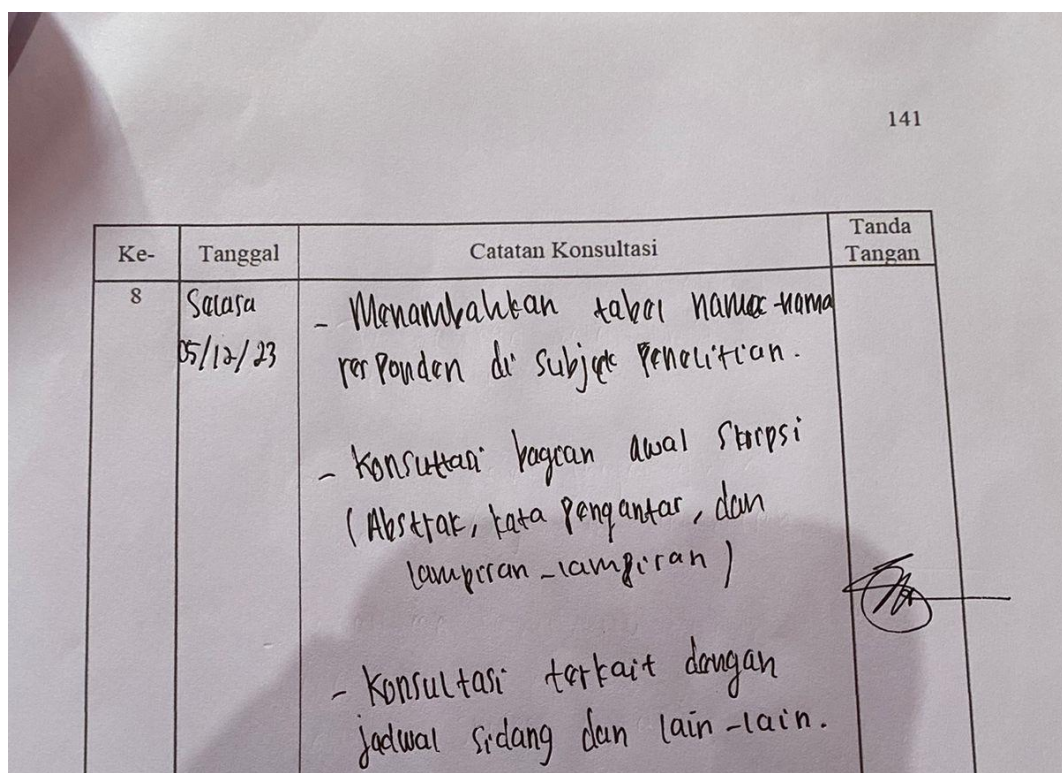 141
Ke- Tanggal Catatan Konsultasi Tanda Tangan
8 Selasa
05/12/23
- Menambahkan tabel nama-nama
responden di subjek penelitian.
- Konsultasi bagian awal skripsi
(Abstrak, kata pengantar, dan
lampiran-lampiran)
- Konsultasi terkait dengan
jadwal sidang dan lain-lain.